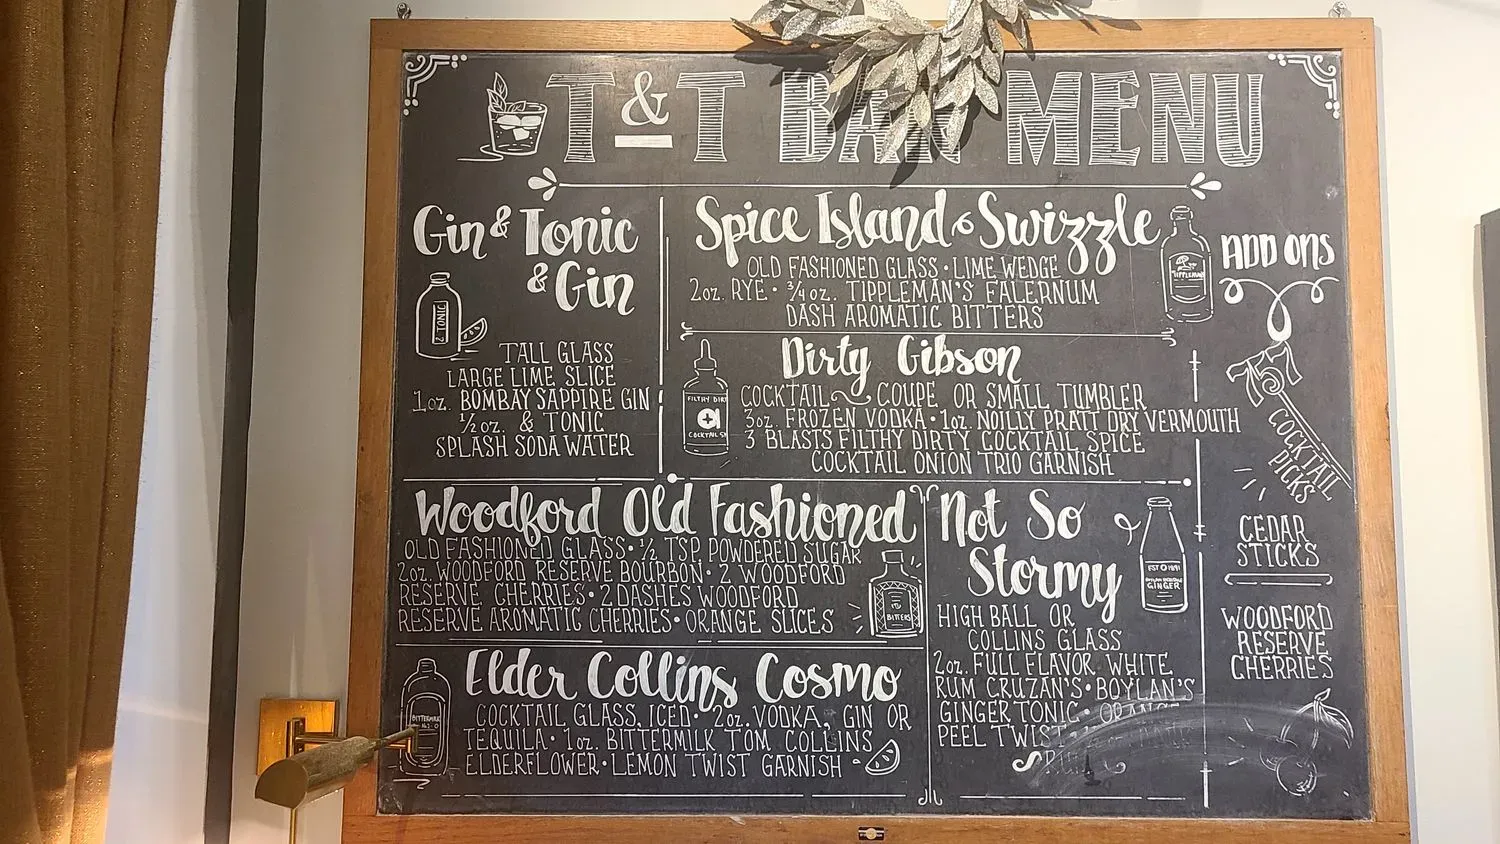 T & T BAR MENU
Gin & Tonic
& Gin
TONIC
TALL GLASS
LARGE LIME SLICE
1oz. BOMBAY SAPPIRE GIN
1/2 oz. & TONIC
SPLASH SODA WATER
Spice Island Swizzle
OLD FASHIONED GLASS • LIME WEDGE
2oz. RYE • 3/4 oz. TIPPLEMAN'S FALERNUM
DASH AROMATIC BITTERS
TIPPLEMAN
Dirty Gibson
COCKTAIL COUPE OR SMALL TUMBLER
3oz. FROZEN VODKA • 1oz. NOILLY PRATT DRY VERMOUTH
3 BLASTS FILTHY DIRTY COCKTAIL SPICE
COCKTAIL ONION TRIO GARNISH
FILTHY DIR
COCKTAIL
Woodford Old Fashioned
OLD FASHIONED GLASS • 1/2 TSP POWDERED SUGAR
2oz. WOODFORD RESERVE BOURBON • 2 WOODFORD
RESERVE CHERRIES • 2 DASHES WOODFORD
RESERVE AROMATIC CHERRIES • ORANGE SLICES
BITTERS
Elder Collins Cosmo
COCKTAIL GLASS, ICED • 2oz. VODKA, GIN OR
TEQUILA • 1oz. BITTERMILK TOM COLLINS
ELDERFLOWER • LEMON TWIST GARNISH
BITTERMILK
Not So
Stormy
EST 1891
GINGER
HIGH BALL OR
COLLINS GLASS
2oz. FULL FLAVOR WHITE
RUM CRUZAN'S • BOYLAN'S
GINGER TONIC • ORANGE
PEEL TWIST
ADD ONS
COCKTAIL
PICKS
CEDAR
STICKS
WOODFORD
RESERVE
CHERRIES